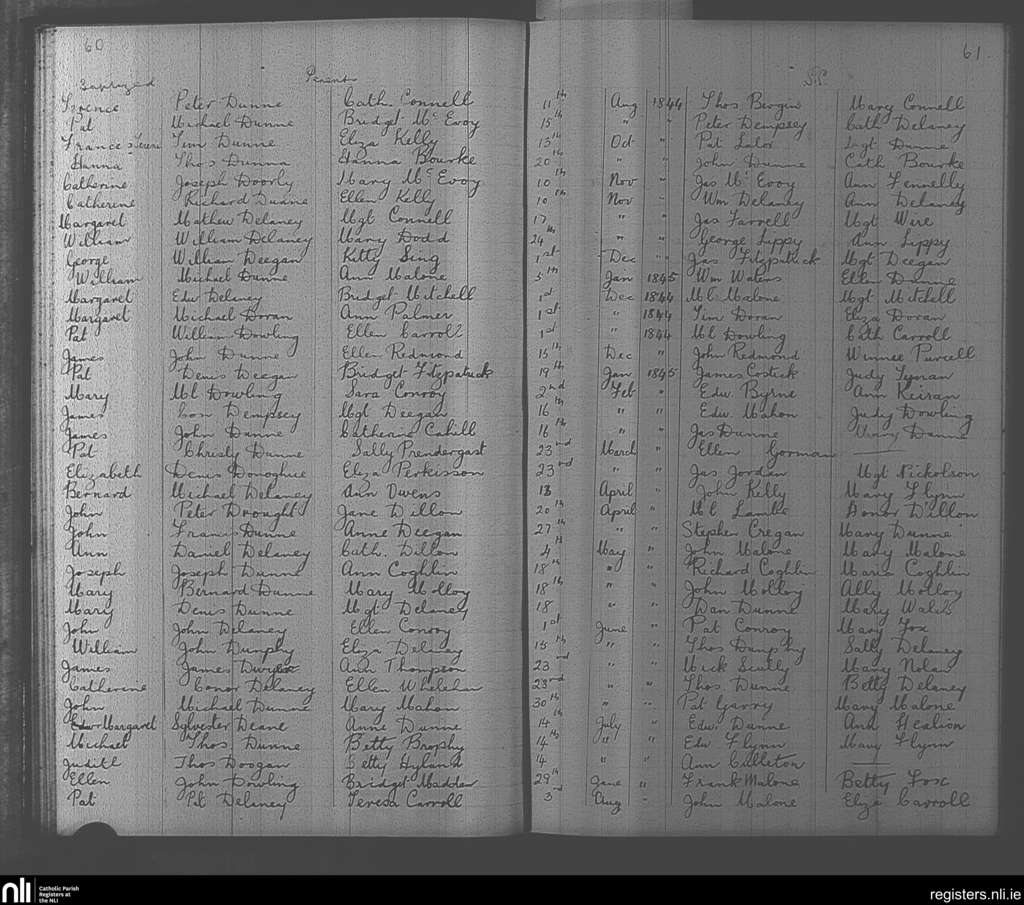 60 61
Baptized Parents S.P.
Peter Dunne Cath. Connell 11th Aug 1844 Thos Bergin Mary Connell
Pat Michael Dunne Bridget McEvoy 15th " " Peter Dempsey Cath Delaney
Frances Teresa Tim Dunne Eliza Kelly 13th Oct " Pat Lalor Mgt Dunne
Hanna Thos Dunna Hanna Bourke 20th " " John Dunne Cath Bourke
Catherine Joseph Doorly Mary McEvoy 10th Nov " Jas McEvoy Ann Fennelly
Catherine Richard Dunne Ellen Kelly 10th Nov " Wm Delaney Ann Delaney
Margaret Mathew Delaney Mgt Connell 17th " " Jas Farrell Mgt Wire
William William Delaney Mary Dodd 24th " " George Lippy Ann Lippy
George William Deegan Kitty Sing 1st Dec " Jas Fitzpatrick Mgt Deegan
William Michael Dunne Ann Malone 5th Jan 1845 Wm Waters Ellen Dunne
Margaret Edw Delaney Bridget Mitchell 1st Dec 1844 Ml Malone Mgt Mitchell
Margaret Michael Doran Ann Palmer 1st " 1844 Tim Doran Eliza Doran
Pat William Dowling Ellen Carroll 1st " 1844 Ml Dowling Cath Carroll
James John Dunne Ellen Redmond 15th Dec " John Redmond Winnee Purcell
Pat Denis Deegan Bridget Fitzpatrick 19th Jan 1845 James Costick Judy
Mary Ml Dowling Sara Conroy 2nd Feb " Edw. Byrne Ann Keiran
James Con Dempsey Mgt Deegan 16th " " Edw. Mahon Judy Dowling
James John Dunne Catherine Cahill 16th " " Jas Dunne Mary Dunne
Pat Christy Dunne Sally Prendergast 23rd March " Ellen Gorman —
Elizabeth Denis Donoghue Eliza Perkisson 23rd " " Jas Jordan Mgt Nickolson
Bernard Michael Delaney Ann Owens 13 April " John Kelly Mary Flynn
John Peter Drought Jane Dillon 20th April " Ml Lambe Honor Dillon
John Francis Dunne Anne Deegan 27th " " Stephen Cregan Mary Dunne
Ann Daniel Delaney Cath. Dillon 4th May " John Malone Mary Malone
Joseph Joseph Dunne Ann Coghlin 18th " " Richard Coghlin Maria Coghlin
Mary Bernard Dunne Mary Molloy 18th " " John Molloy Ally Molloy
Mary Denis Dunne Mgt Delaney 18 " " Dan Dunne Mary Walsh
John John Delaney Ellen Conroy 1st June " Pat Conroy Mary Fox
William John Dunphy Eliza Delaney 15th " " Thos Dunphy Sally Delaney
James James Ann Thompson 23rd " " Mick Scully Mary Nolan
Catherine Conor Delaney Ellen Whelehan 23rd " " Thos. Dunne Betty Delaney
John Michael Dunne Mary Mahon 30th " " Pat Garry Mary Malone
Margaret Sylvester Deane Anne Dunne 14th July " Edw. Dunne Ann Healion
Michael Thos Dunne Betty Brophy 14th " " Edw Flynn Mary Flynn
Judith Thos Doogan Betty Hyland 14 " " Ann Culleton —
Ellen John Dowling Bridget Madden 29th June " Frank Malone Betty Fox
Pat Pat Delaney Teresa Carroll 3rd Aug " John Malone Eliza Carroll
nli Catholic Parish Registers at the NLI registers.nli.ie